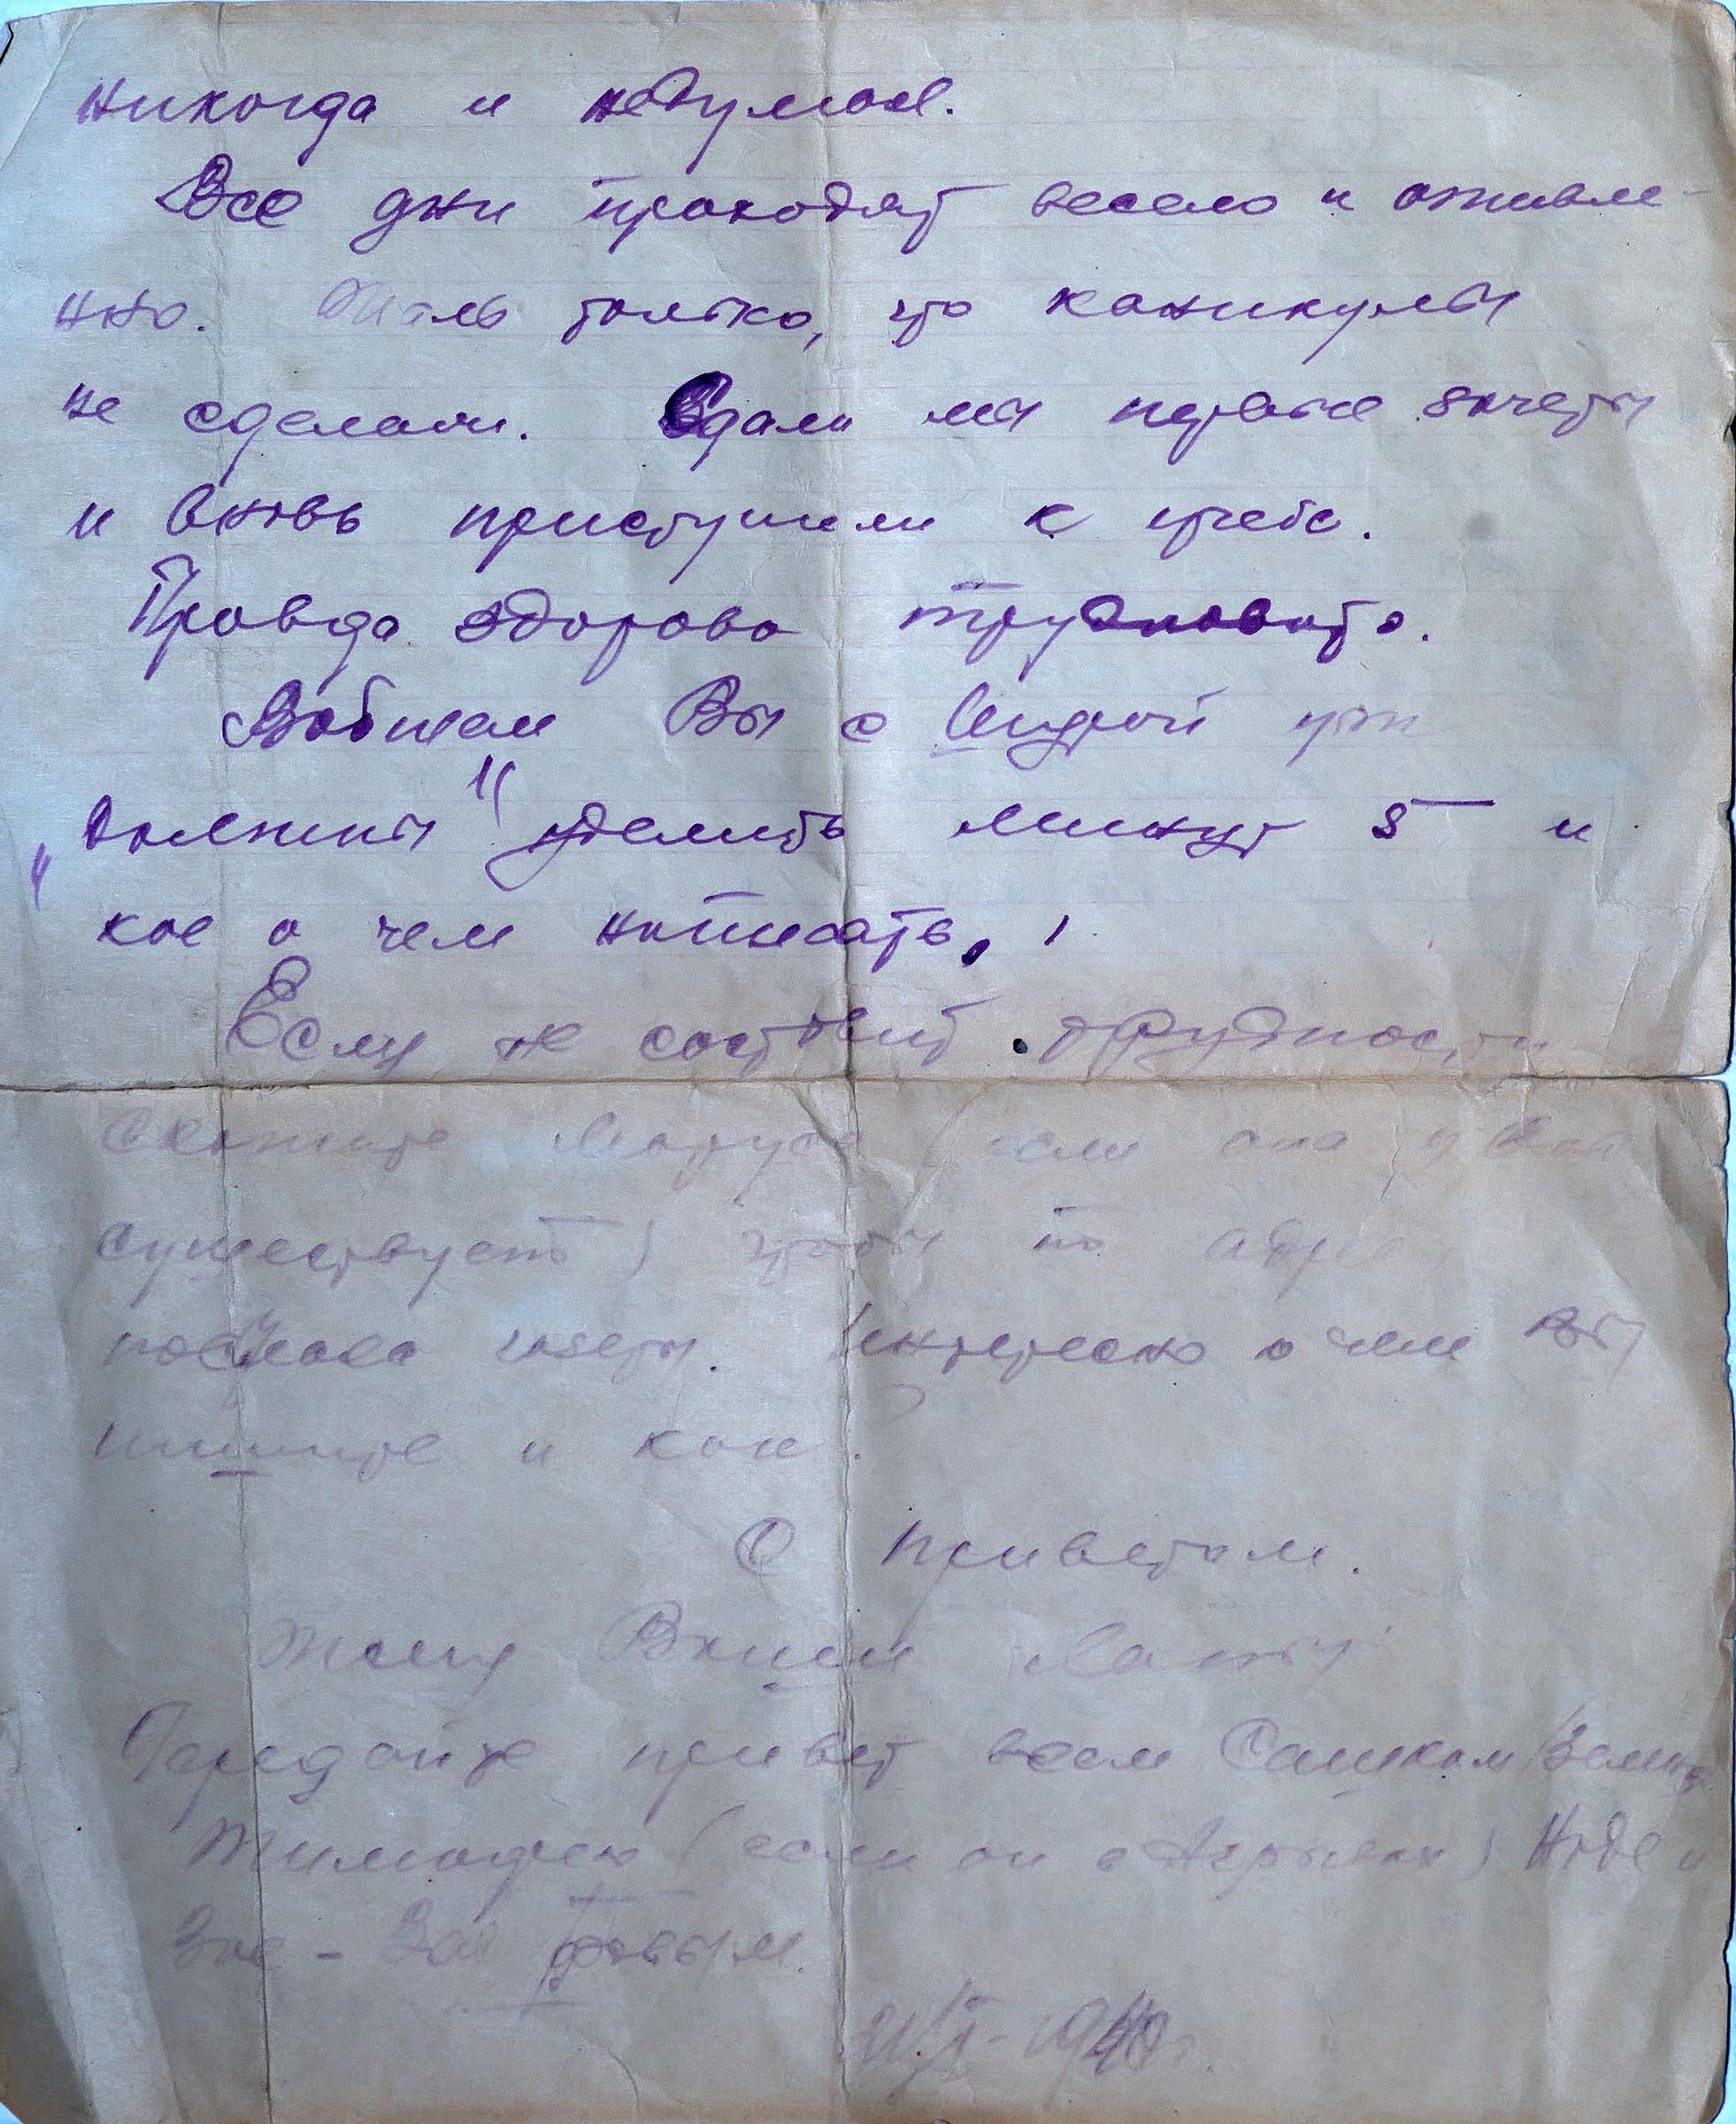 никогда и недумал.
Все дни проходят весело и оживле-
нно. Жаль только, что каникулы
не сделали. Сдали мы первые зачеты
и вновь приступили к учебе.
Правда здорово трудновато.
Вобщем Вы с Шурой уж
„должны" уделить минут 5 и
кое о чем написать.
Если не составит трудности
скажите Марусе (если она у Вас
существует) чтобы по адресу
послала газеты. Интересно о чем Вы
пишите и как.
С приветом.
Жму Ваши лапы
Передайте привет всем Сашкам
(если он в) Наде и
Зое - Зое
1940 г.